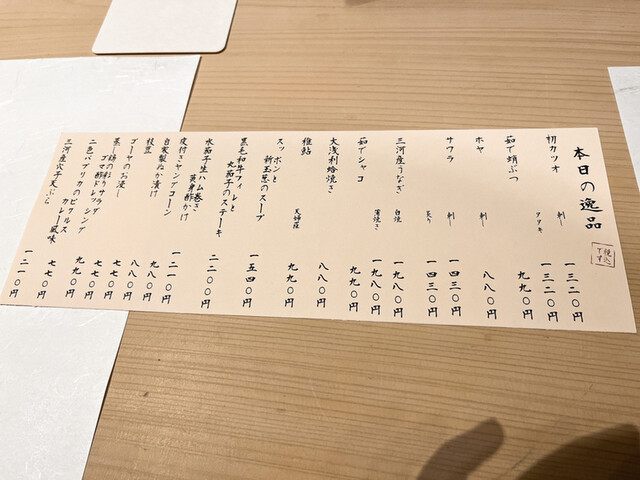 本日の逸品
税込です
初カツオ 刺し 一三二〇円
タタキ 一三二〇円
茹で蛸ぶつ 九九〇円
ホヤ 刺し 八八〇円
サワラ 刺し 一四三〇円
炙り 一四三〇円
三河産うなぎ 白焼 一九八〇円
蒲焼き 一九八〇円
茹でシャコ 九九〇円
大浅利蛤焼き 八八〇円
稚鮎 天婦羅 九九〇円
スッポンと
新玉葱のスープ 一五四〇円
黒毛和牛フィレと
丸茄子のステーキ 二二〇〇円
水茄子生ハム巻き
黄身酢かけ 一二一〇円
皮付きヤングコーン 九八〇円
自家製ぬか漬け 八八〇円
枝豆 七七〇円
ゴーヤのお浸し 七七〇円
蒸し鶏のサラダ
ゴマ酢ドレッシング 九九〇円
二色パプリカのピクルス
カレー風味 七七〇円
三河産穴子天ぷら 一二一〇円